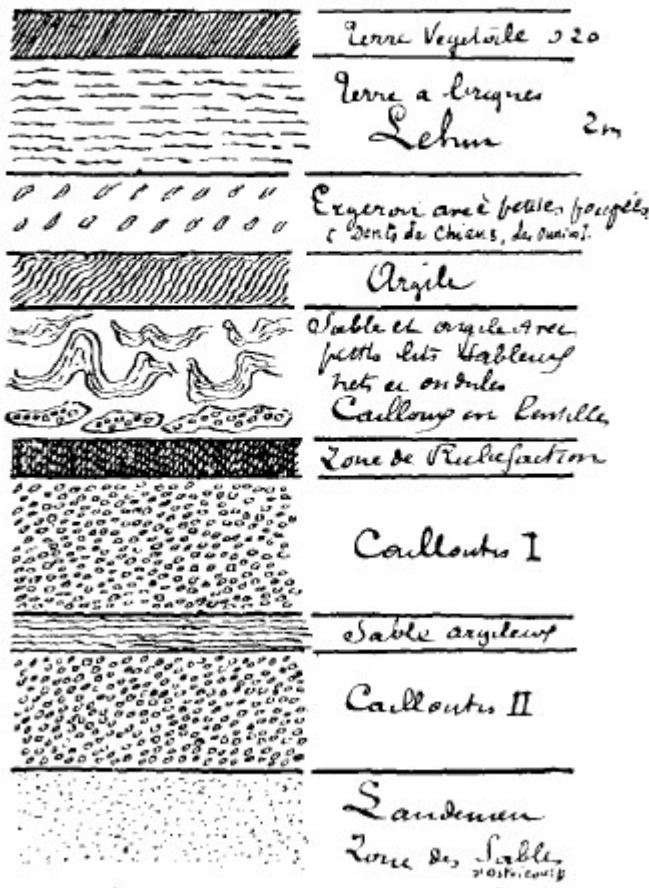 Terre Vegetale 0 20
Terre a briques
Lehm 2m
Ergeron avec petites poupées
( Dents de Chiens, des
Argile
Sable et argile avec
petits lits sableux
nets et ondules
Cailloux en lentilles
Zone de Rubefaction
Cailloutis I
Sable argileux
Cailloutis II
Landenien
Zone des Sables
d'Ostricourt